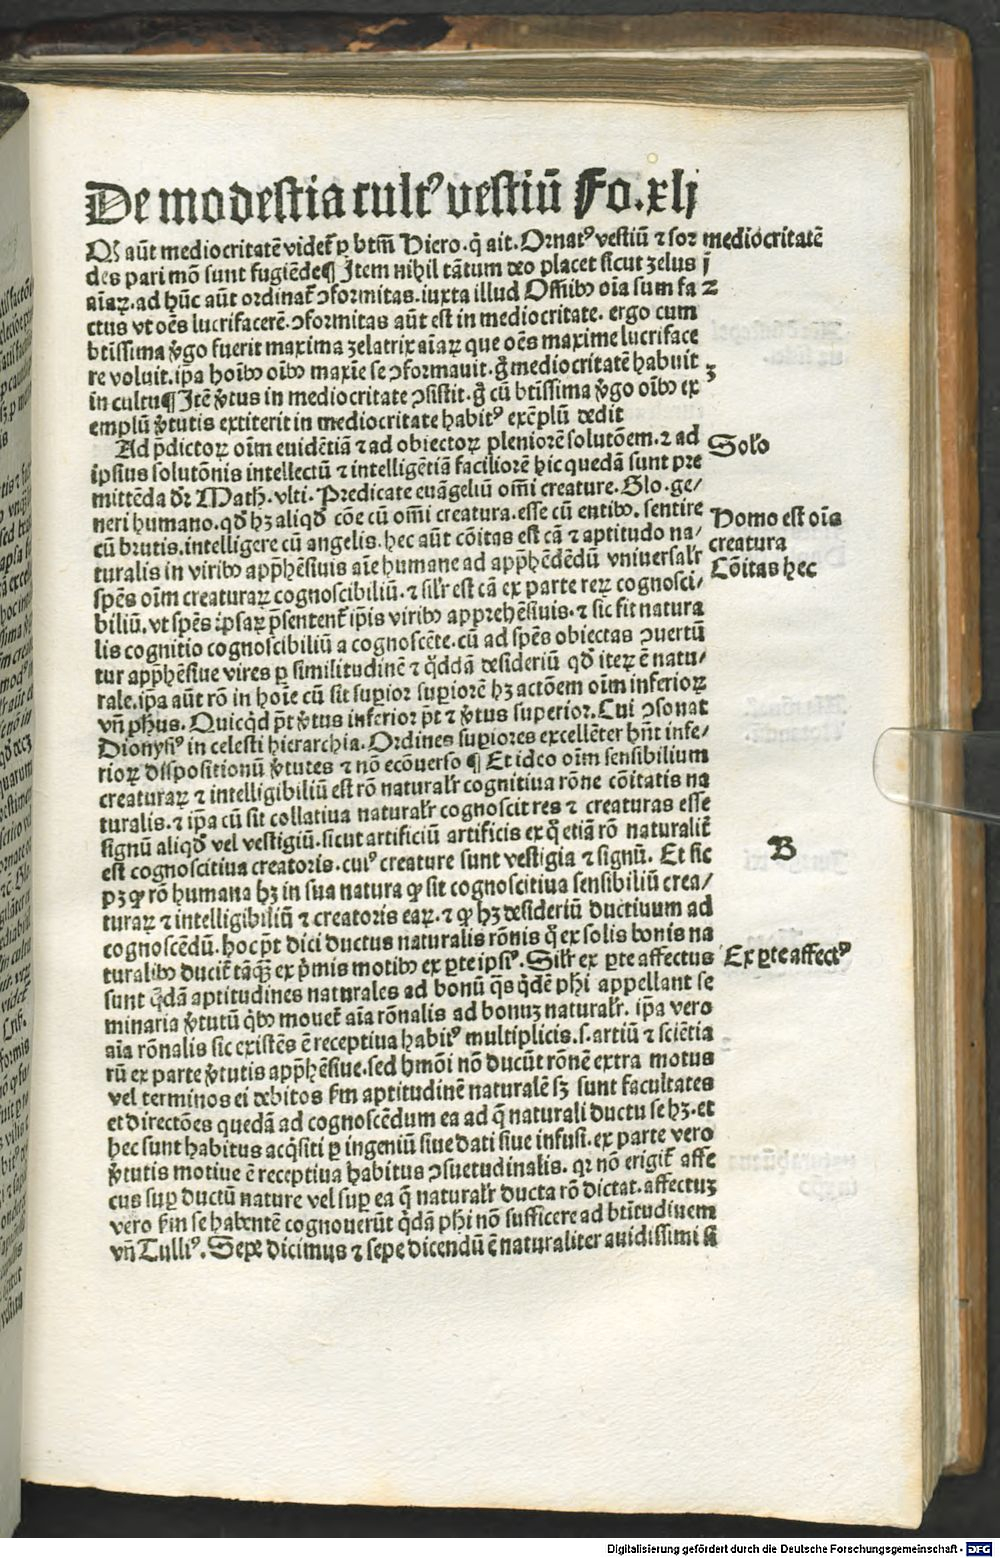 De modestia cult⁹ vestiū Fo.xlj
Q̄ aūt mediocritatē videt̄ ꝑ btm̄ Hiero. q̇ ait. Ornat⁹ vestiū ⁊ sor mediocritatē
des pari mō sunt fugiēde¶ Itē nihil tātum deo placet sicut zelus j
aīaꝝ. ad hūc aūt ordinat̄ ꝯformitas. iuxta illud Oīnibꝰ oīa sum fa 2
ctus vt oēs lucrifacerē. ꝯformitas aūt est in mediocritate. ergo cum
btīssima ꝟgo fuerit maxima zelatrix aīaꝝ que oēs maxime lucriface
re voluit. ip̄a hoībꝰ oībꝰ maxīe se ꝯformauit. g̊ mediocritatē habuit 3
in cultu¶ Itē ꝟtus in mediocritate ꝯsistit. g̊ cū btīssima ꝟgo oībꝰ ex
emplū ꝟtutis extiterit in mediocritate habit⁹ exēplū dedit
Ad p̄dictoꝝ oīm euidētiā ⁊ ad obiectoꝝ pleniorē solutōem. ⁊ ad Solo
ipsius solutōnis intellectū ⁊ intelligētiā faciliorē hic quedā sunt pre
mittēda dr̄ Math. vlti. Predicate euāgeliū om̄i creature. Glo. ge/
neri humano. qd̄ hꝫ aliqd̄ cōe cū om̄i creatura. esse cū entibꝰ. sentire Homo est oīa
cū brutis. intelligere cū angelis. hec aūt cōitas est cā ⁊ aptitudo na/ creatura
turalis in viribꝰ app̄hēsiuis aīe humane ad app̄hēdēdū vniuersal̄r Cōitas hec
sp̄es oīm creaturaꝝ cognoscibiliū. ⁊ sil̄r est cā ex parte reꝝ cognosci/
biliū. vt sp̄es ip̄saꝝ p̄sentent̄ ip̄is viribꝰ apprehēsiuis. ⁊ sic fit natura
lis cognitio cognoscibiliū a cognoscēte. cū ad sp̄es obiectas ꝯuertū
tur app̄hēsiue vires ꝑ similitudinē ⁊ q̇ddā desideriū qd̄ iteꝝ ē natu/
rale. ip̄a aūt rō in hoīe cū sit suꝑior suꝑiorē hꝫ actōem oīm inferioꝝ
vn̄ ph̄us. Quicq̇d p̄t ꝟtus inferior p̄t ⁊ ꝟtus superior. Cui ꝯsonat
Dionysi⁹ in celesti hierarchia. Ordines suꝑiores excellēter hn̄t infe/
rioꝝ dispositionū ꝟtutes ⁊ nō ecōuerso ¶ Et ideo oīm sensibilium
creaturaꝝ ⁊ intelligibiliū est rō natural̄r cognitiua rōne cōitatis na
turalis. ⁊ ip̄a cū sit collatiua natural̄r cognoscit res ⁊ creaturas esse
signū aliqd̄ vel vestigiū. sicut artificiū artificis ex q̊ etiā rō naturalit̄
est cognoscitiua creatoris. cui⁹ creature sunt vestigia ⁊ signū. Et sic B
pꝫ ꝙ rō humana hꝫ in sua natura ꝙ sit cognoscitiua sensibiliū crea/
turaꝝ ⁊ intelligibiliū ⁊ creatoris eaꝝ. ⁊ ꝙ hꝫ desideriū ductiuum ad
cognoscēdū. hoc p̄t dici ductus naturalis rōnis q̇ ex solis bonis na
turalibꝰ ducit̄ tāq̄ꝫ ex p̄mis motibꝰ ex ꝑte ipsi⁹. Sil̄r ex ꝑte affectus Ex ꝑte affect⁹
sunt q̄dā aptitudines naturales ad bonū q̄s q̇dē ph̄i appellant se
minaria ꝟtutū q̇bꝰ mouet̄ aīa rōnalis ad bonuꝫ natural̄r. ip̄a vero
aīa rōnalis sic existēs ē receptiua habit⁹ multiplicis. s. artiū ⁊ sciētia
rū ex parte ꝟtutis app̄hēsiue. sed hmōi nō ducūt rōnē extra motus
vel terminos ei debitos ẜm aptitudinē naturalē sꝫ sunt facultates
et directōes quedā ad cognoscēdum ea ad q̄ naturali ductu se hꝫ. et
hec sunt habitus acq̇siti ꝑ ingeniū siue dati siue infusi. ex parte vero
ꝟtutis motiue ē receptiua habitus ꝯsuetudinalis. qr nō erigit̄ affe
ctus suꝑ ductū nature vel suꝑ ea q̄ natural̄r ducta rō dictat. affectuꝫ
vero ẜm se habentē cognouerūt q̇dā ph̄i nō sufficere ad btitudinem
vn̄ Tulli⁹. Sepe dicimus ⁊ sepe dicendū ē naturaliter auidissimi sū
Digitalisierung gefördert durch die Deutsche Forschungsgemeinschaft - DFG